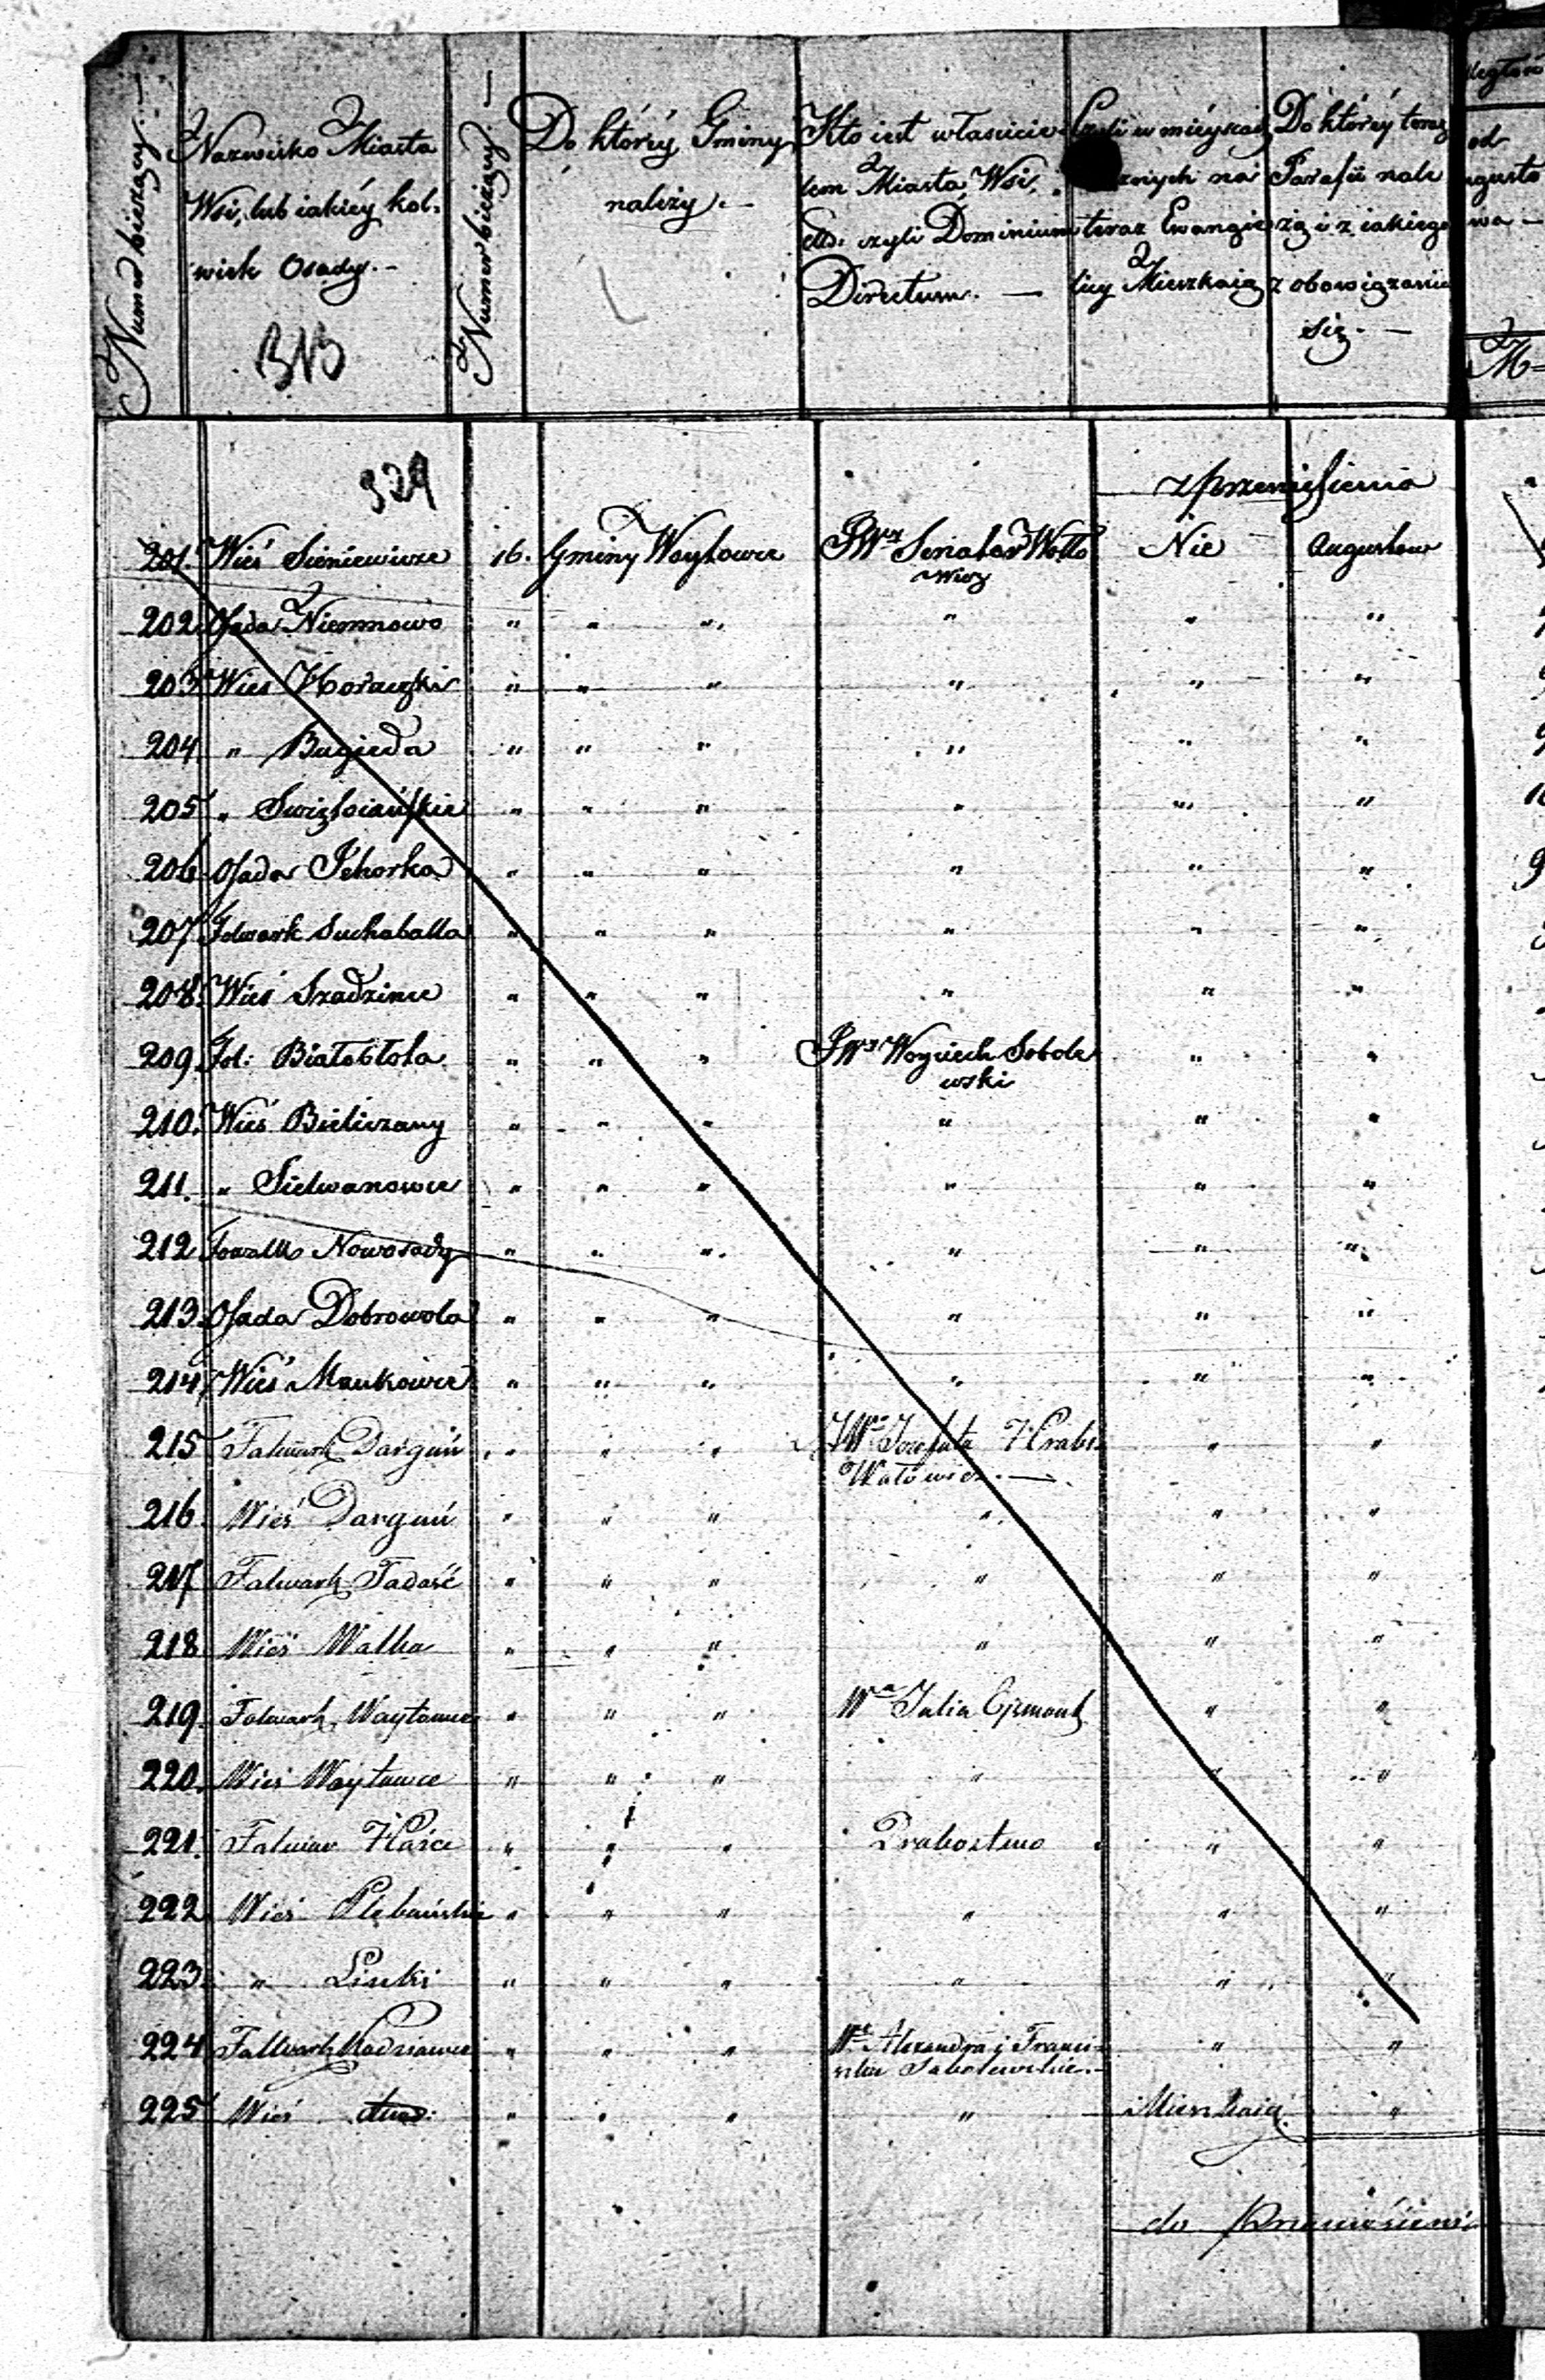 Numer bieżący. —
Nazwisko Miasta
Wsi, lub iakiéy kol-
wiek Osady. -
BNB
Numer bieżący —
Do któréy Gminy
należy. -
Kto iest właścicie-
lem Miasta, Wsi,
czyli Dominium
Directum. —
Czyli w mieysca
znych na
teraz Ewangie
licy Mieszkaią
Do któréy teraz
Parafii nale
żą i z iakiego
zobowiązania
się. —
od
M=
329
z przeniesienia
201. Wieś Sieniewicze 16. Gminy Woytowce JWy Senator Wołło Nie Augustow
wicz
202. Osada Niemnowo " " " " " "
203 Wieś Horaczki " " " " " "
204. " Bugieda " " " " " "
205 " Swięłociańskie " " " " " "
206 Osada Jehorka " " " " " "
207 Folwark Suchabałka " " " " " "
208. Wieś Szadzince " " " " " "
209. Fol: Białobłota " " " JWy Woyciech Sobole " "
wski
210. Wieś Bieliczany " " " " " "
211. " Sielwanowce " " " " " "
212 Nowosady " " " " " "
213. Osada Dobrowola " " " " " "
214 Wieś Mankowce " " " " " "
215 Falwark Darguń " " " JWa Jozefata Hrabi " "
Wałowicz. —
216. Wieś Darguń " " " " " "
217 Falwark Tadość " " " " " "
218 Wieś Wałka " " " " " "
219. Folwark Woytowce " " " Wa Julia Ejsmont " "
220. Wieś Woytowce " " " " " "
221. Falwar " " " Probostwo " "
222 Wieś Plebańskie " " " " " "
223 " Linki " " " " " "
224 Fallwark Kadzsiowce " " " Wa Alexandra i Franci " "
szka Sabolewskie. -
225 Wieś " " " " Mieszkaią "
do Przeniesieni